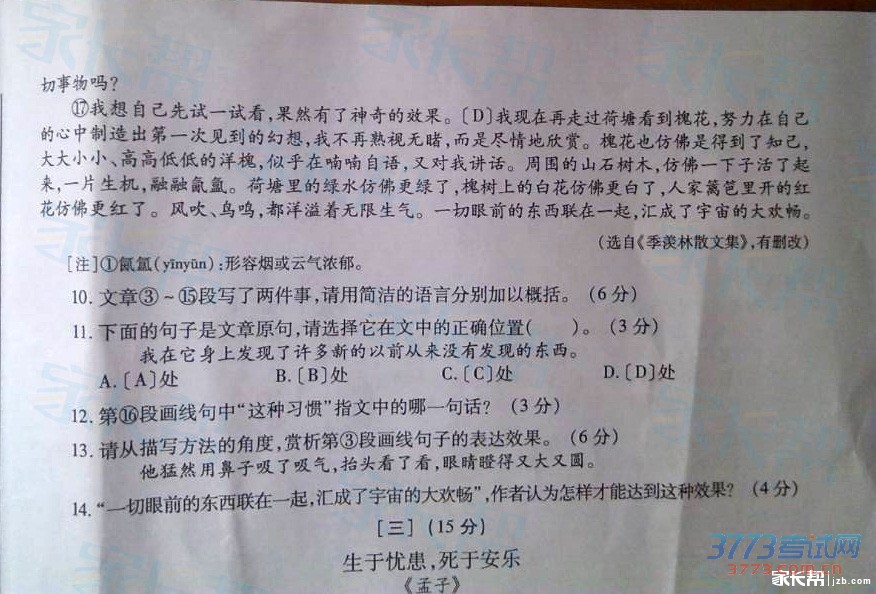 切事物吗?
⑰我想自己先试一试看,果然有了神奇的效果。〔D〕我现在再走过荷塘看到槐花,努力在自己
的心中制造出第一次见到的幻想,我不再熟视无睹,而是尽情地欣赏。槐花也仿佛是得到了知己,
大大小小、高高低低的洋槐,似乎在喃喃自语,又对我讲话。周围的山石树木,仿佛一下子活了起
来,一片生机,融融氤氲。荷塘里的绿水仿佛更绿了,槐树上的白花仿佛更白了,人家篱笆里开的红
花仿佛更红了。风吹、鸟鸣,都洋溢着无限生气。一切眼前的东西联在一起,汇成了宇宙的大欢畅。
(选自《季羡林散文集》,有删改)
[注]①氤氲(yīnyūn):形容烟或云气浓郁。
10. 文章③~⑮段写了两件事,请用简洁的语言分别加以概括。(6分)
11. 下面的句子是文章原句,请选择它在文中的正确位置(  )。(3分)
我在它身上发现了许多新的以前从来没有发现的东西。
A.〔A〕处 B.〔B〕处 C.〔C〕处 D.〔D〕处
12. 第⑯段画线句中“这种习惯”指文中的哪一句话?(3分)
13. 请从描写方法的角度,赏析第③段画线句子的表达效果。(6分)
他猛然用鼻子吸了吸气,抬头看了看,眼睛瞪得又大又圆。
14. “一切眼前的东西联在一起,汇成了宇宙的大欢畅”,作者认为怎样才能达到这种效果?(4分)
[三](15分)
生于忧患,死于安乐
《孟子》
3773考试网
3773.com.cn
家长帮 jzb.com